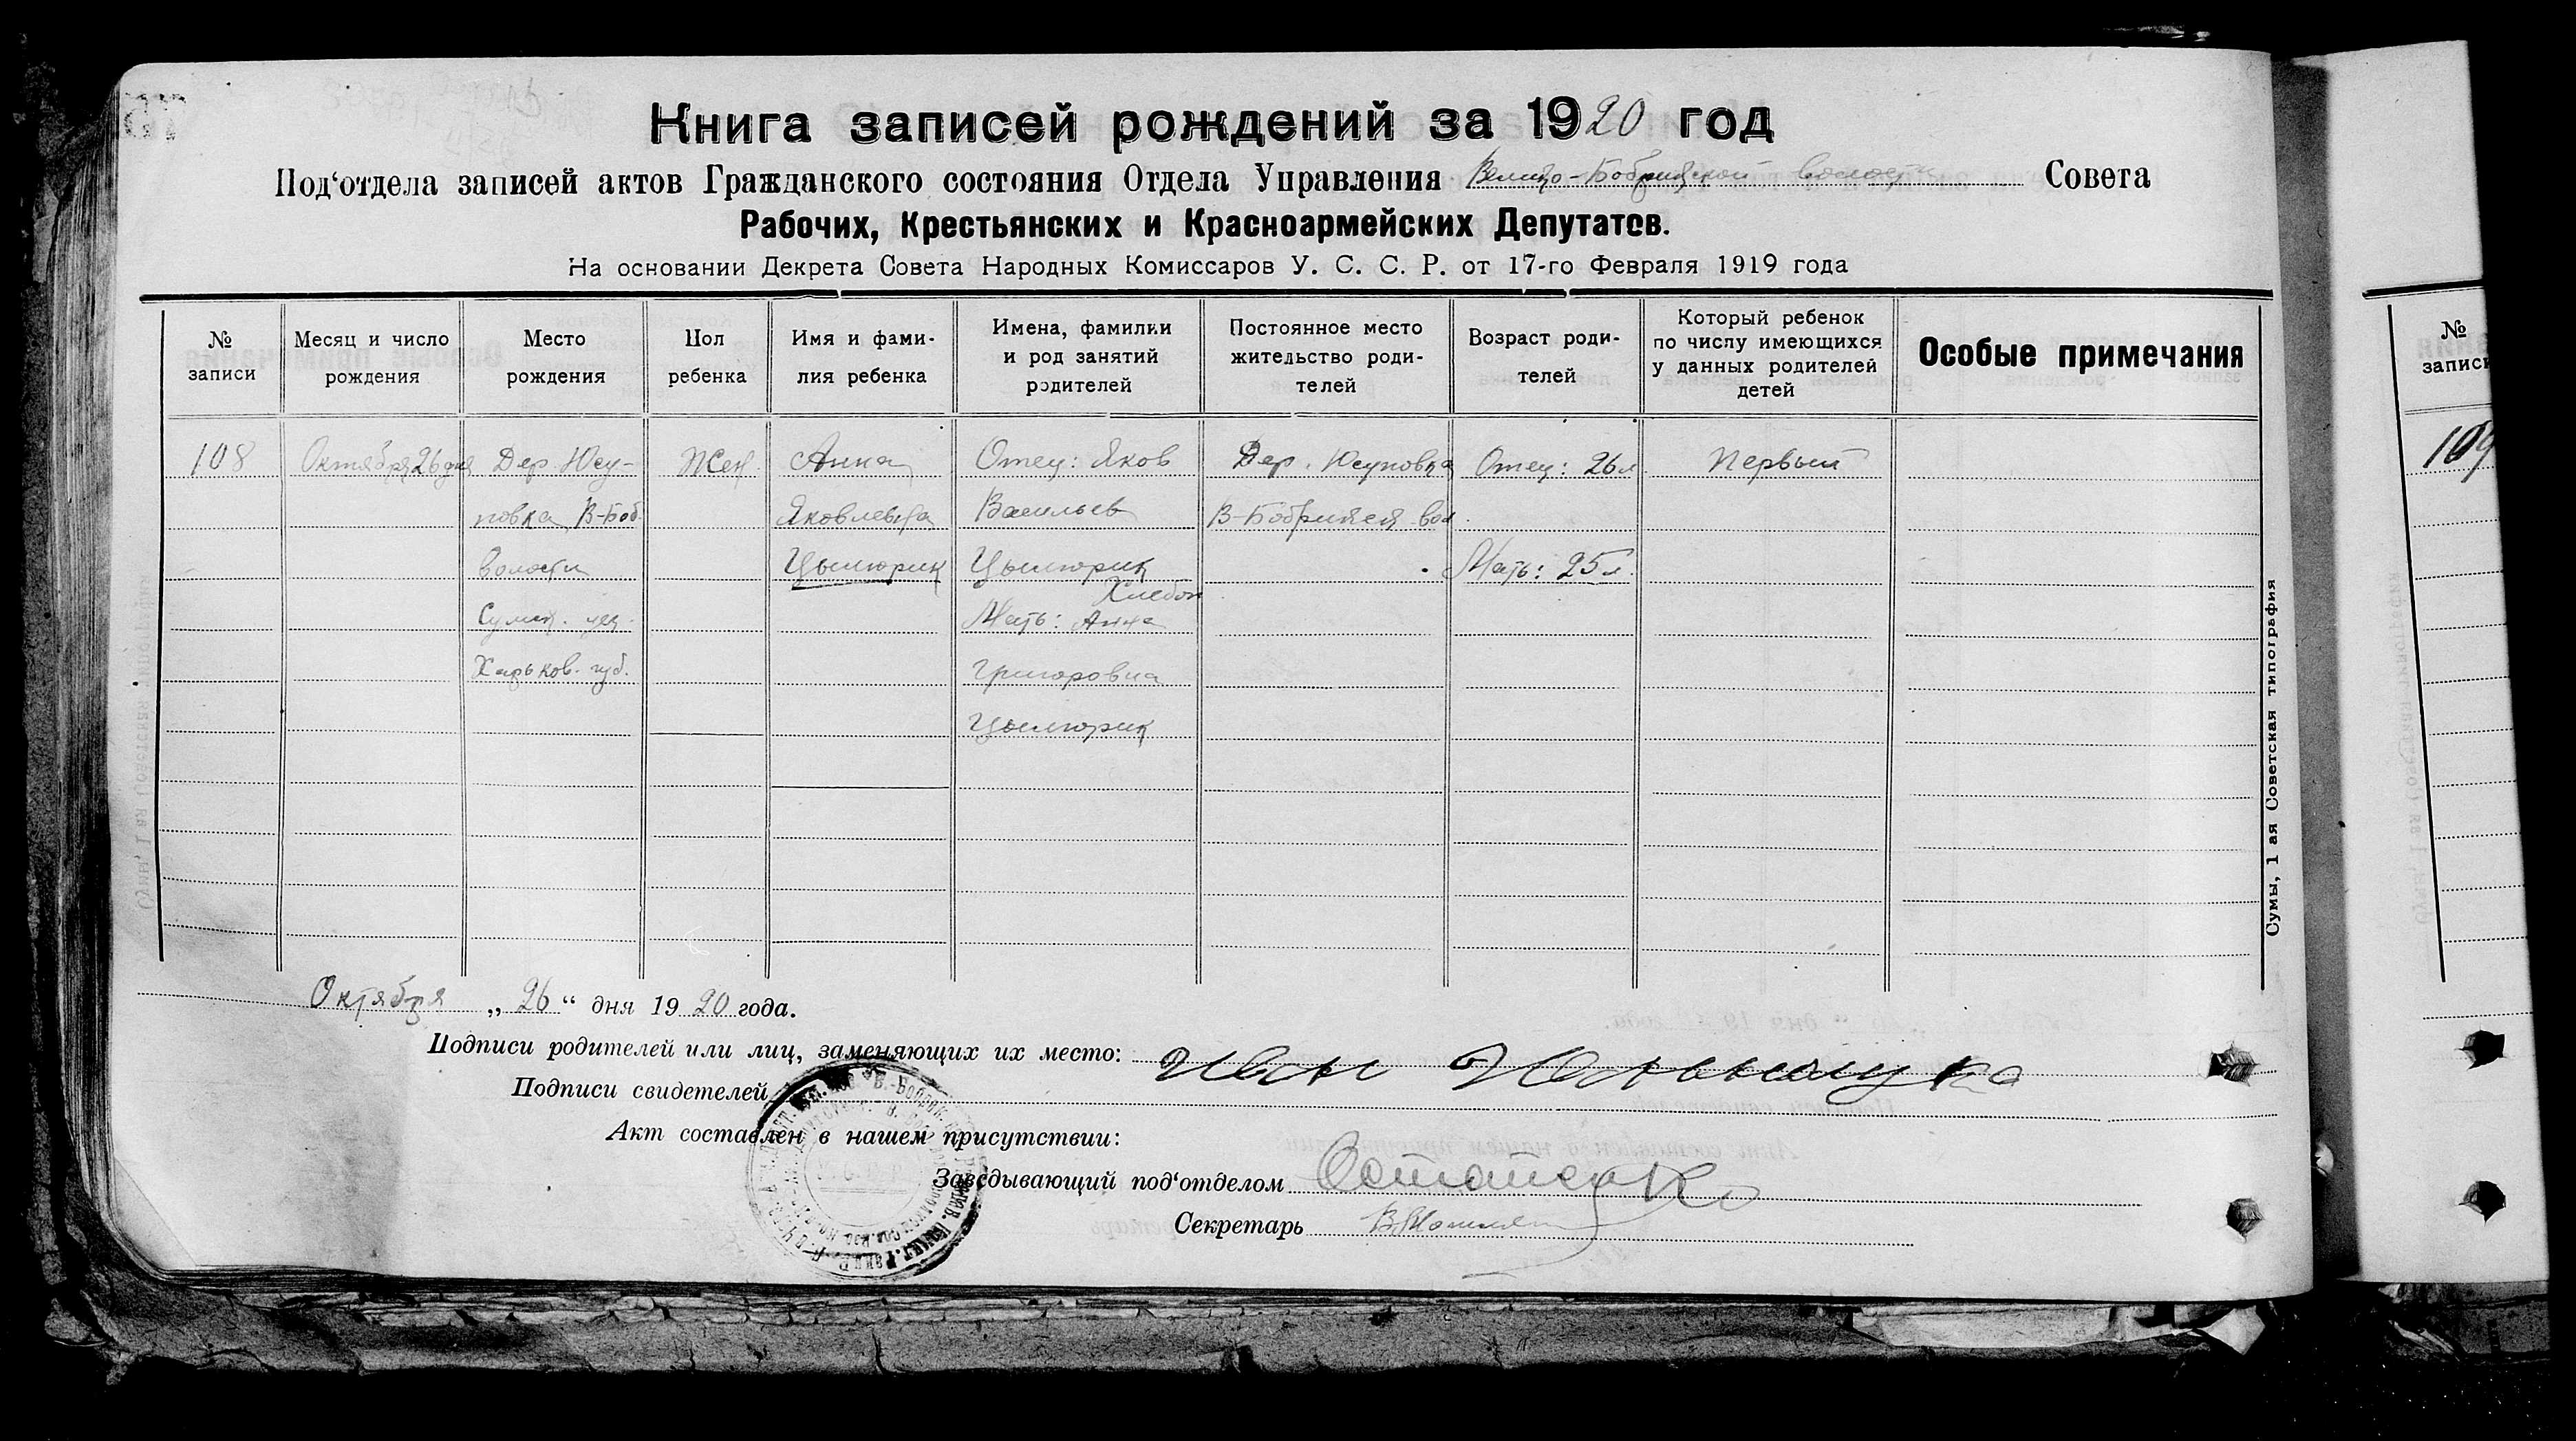 Книга записей рождений за 1920 год
Под‘отдела записей актов Гражданского состояния Отдела Управления Велико-Бобрикской волости Совета
Рабочих, Крестьянских и Красноармейских Депутатов.
На основании Декрета Совета Народных Комиссаров У. С. С. Р. от 17-го Февраля 1919 года
№ записи
Месяц и число рождения
Место рождения
Пол ребенка
Имя и фами-
лия ребенка
Имена, фамилии
и род занятий
родителей
Постоянное место
жительство роди-
телей
Возраст роди-
телей
Который ребенок
по числу имеющихся
у данных родителей
детей
Особые примечания
№
запис
108
Октября 26 дня
Дер Юсу-
повка В-Боб.
волости
Сумск. уез.
Харьков. губ.
Жен.
Анна
Яковлевна
Цылюрик
Отец: Яков
Васильев
Цылюрик
Хлебоп
Мать: Анна
Григоровна
Цылюрик
Дер. Юсуповка
В-Бобрикск. вол.
Отец: 26 л.
Мать: 25 л.
Первый
109
Октября „ 26 “ дня 1920 года.
Подписи родителей или лиц, заменяющих их место: Иван
Подписи свидетелей
Акт составлен в нашем присутствии:
Заведывающий под‘отделом
Секретарь
Сумы, 1 ая Советская типография